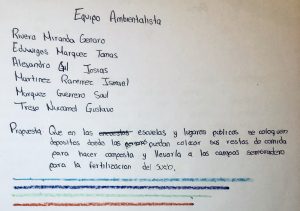 Equipo Ambientalista
Rivera Miranda Genaro
Eduwarges Marquez Tomas
Alejandro Gil Josias
Martinez Ramirez Ismael
Marquez Guerrero Saul
Trejo Nucamel Gustavo
Propuesta Que en las escuelas y lugares publicos se coloquen
depositos donde las puedan colocar sus restos de comida
para hacer composta y llevarla a los campos
para la fertilizacion del suelo,